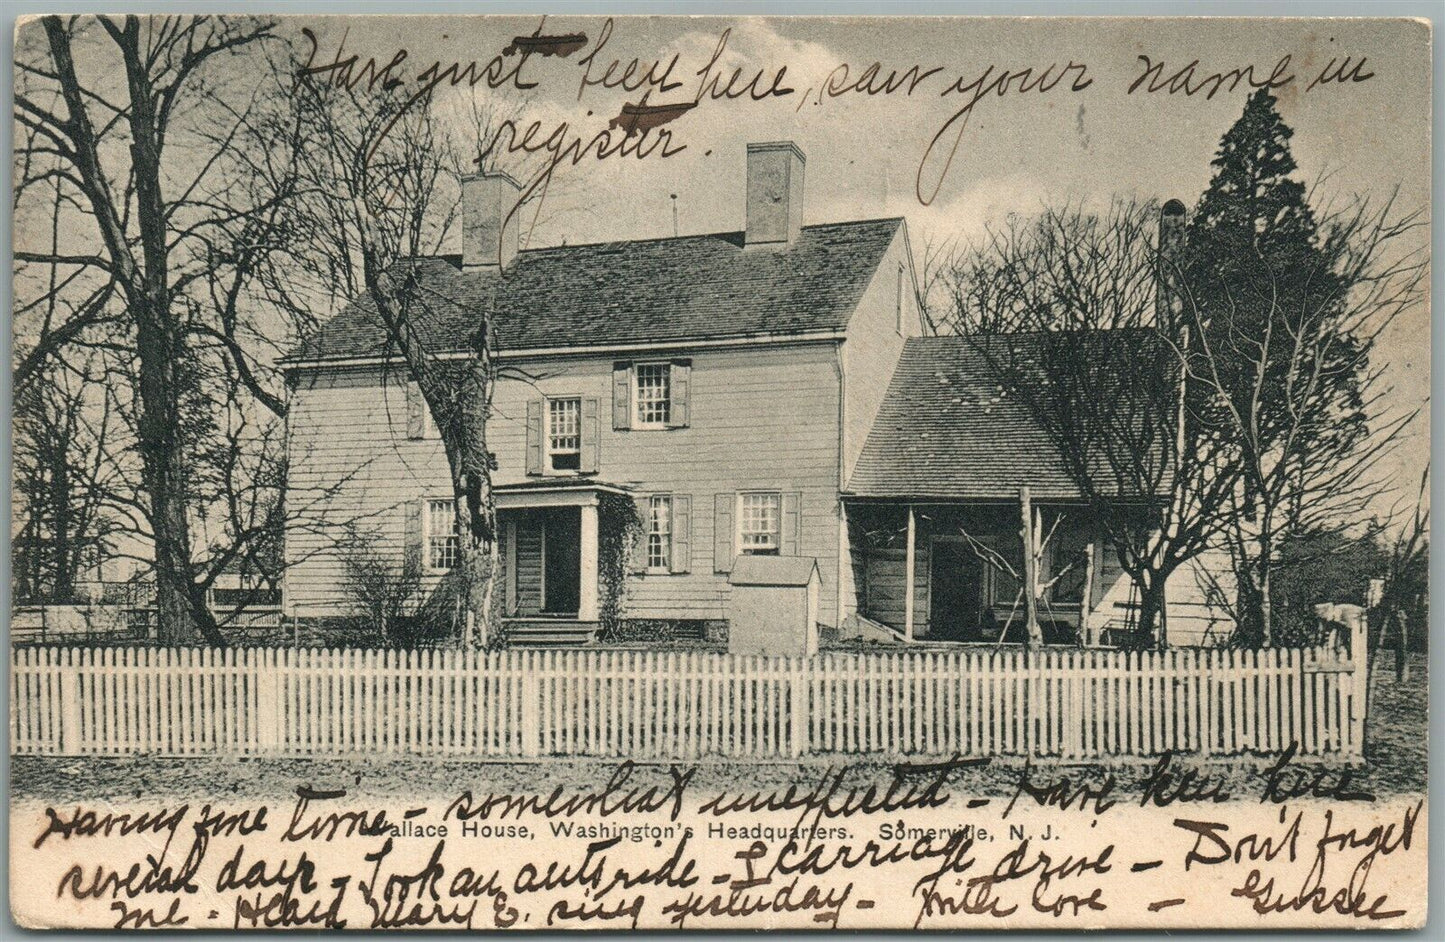 Have just been here, saw your name in
register.
Having fine time - somewhat unexpected - Have been here
Wallace House, Washington's Headquarters. Somerville, N. J.
several days - Took an auto ride - & carriage drive - Don't forget
me - Heard Mary E. sing yesterday - With love - Gussie